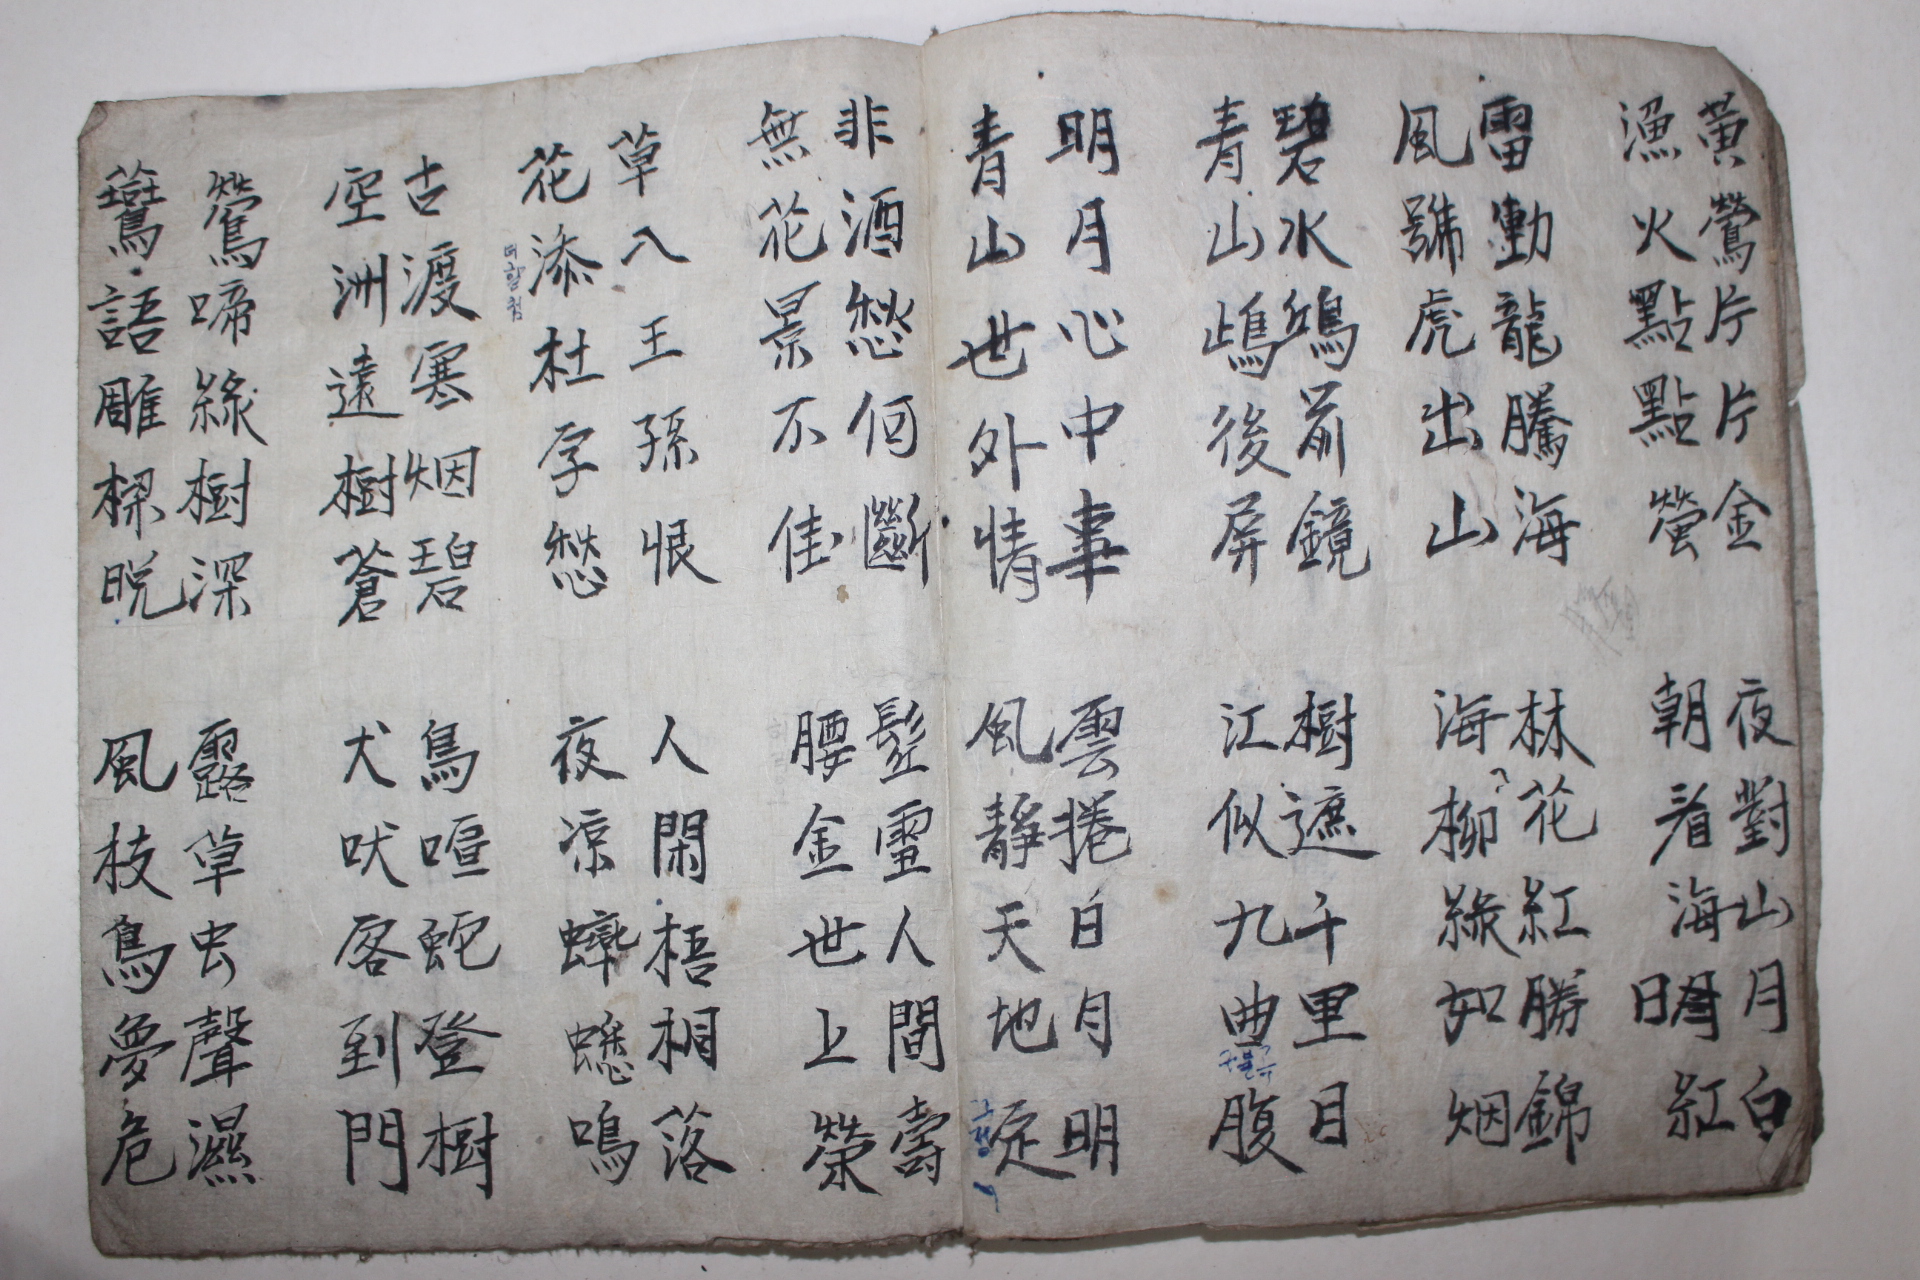 黃鶯片片金
漁火點點螢
夜對山月白
朝看海日紅
雷動龍騰海
風號虎出山
林花紅勝錦
海柳綠如烟
碧水鴻前鏡
青山鴟後屏
樹遮千里日
江似九曲腹
明月心中事
青山世外情
雲捲白月明
風靜天地定
非酒愁何斷
無花景不佳
髩雪人間壽
腰金世上榮
草入王孫恨
花添杜宇愁
더할첨
人閑梧桐落
夜凉蟀蟋鳴
古渡寒烟碧
空洲遠樹蒼
鳥喧蛇登樹
犬吠客到門
鶯啼綠樹深
鷰語雕樑晩
露草虫聲濕
風枝鳥夢危